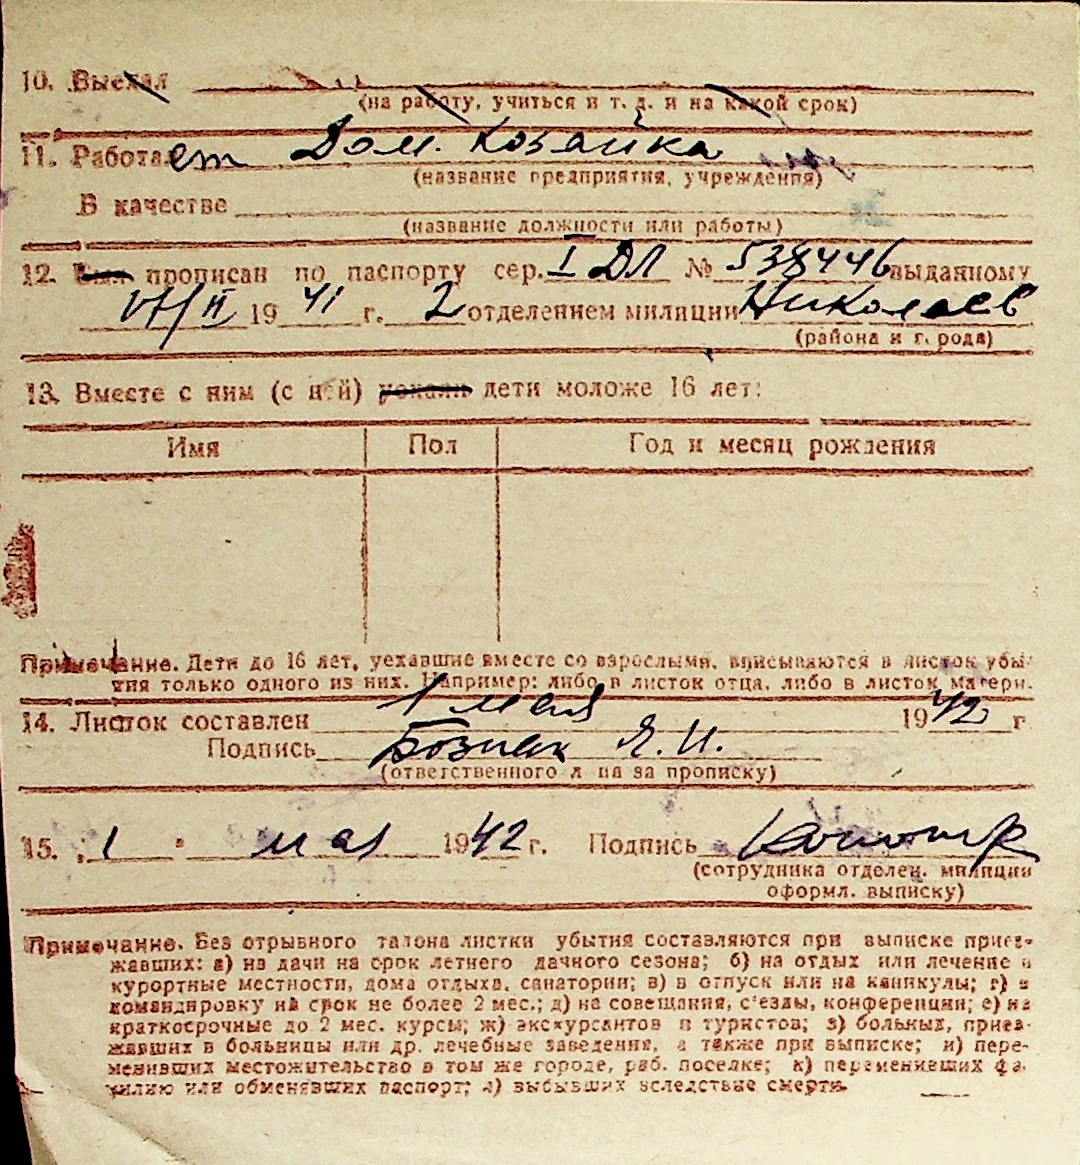 10. Выехал
(на работу, учиться и т. д. и на какой срок)
11. Работает Дом. Хозяйка
(название предприятия, учреждения)
В качестве
(название должности или работы)
12. Был прописан по паспорту сер. I ДЛ № 538446 выданному
VII/II 19 41 г. 2 отделением милиции Николаев
(района и г. рода)
13. Вместе с ним (с ней) уехали дети моложе 16 лет:
Имя Пол Год и месяц рождения
Примечание. Дети до 16 лет, уехавшие вместе со взрослыми, вписываются в листок убы-
тия только одного из них. Например: либо в листок отца, либо в листок матери.
14. Листок составлен 1 мая 1942 г
Подпись Я. И.
(ответственного л ца за прописку)
15. „1 " мая 1942 г. Подпись
(сотрудника отделен. милиции
оформл. выписку)
Примечание. Без отрывного талона листки убытия составляются при выписке приез-
жавших: а) на дачи на срок летнего дачного сезона; б) на отдых или лечение в
курортные местности, дома отдыха, санатории; в) в отпуск или на каникулы; г) в
командировку на срок не более 2 мес.; д) на совещания, с'езды, конференции; е) на
краткосрочные до 2 мес. курсы; ж) экскурсантов и туристов; з) больных, приез-
жавших в больницы или др. лечебные заведения, а также при выписке; и) пере-
менивших местожительство в том же городе, раб. поселке; к) переменивших фа-
милию или обменявших паспорт; л) выбывших вследствие смерти.